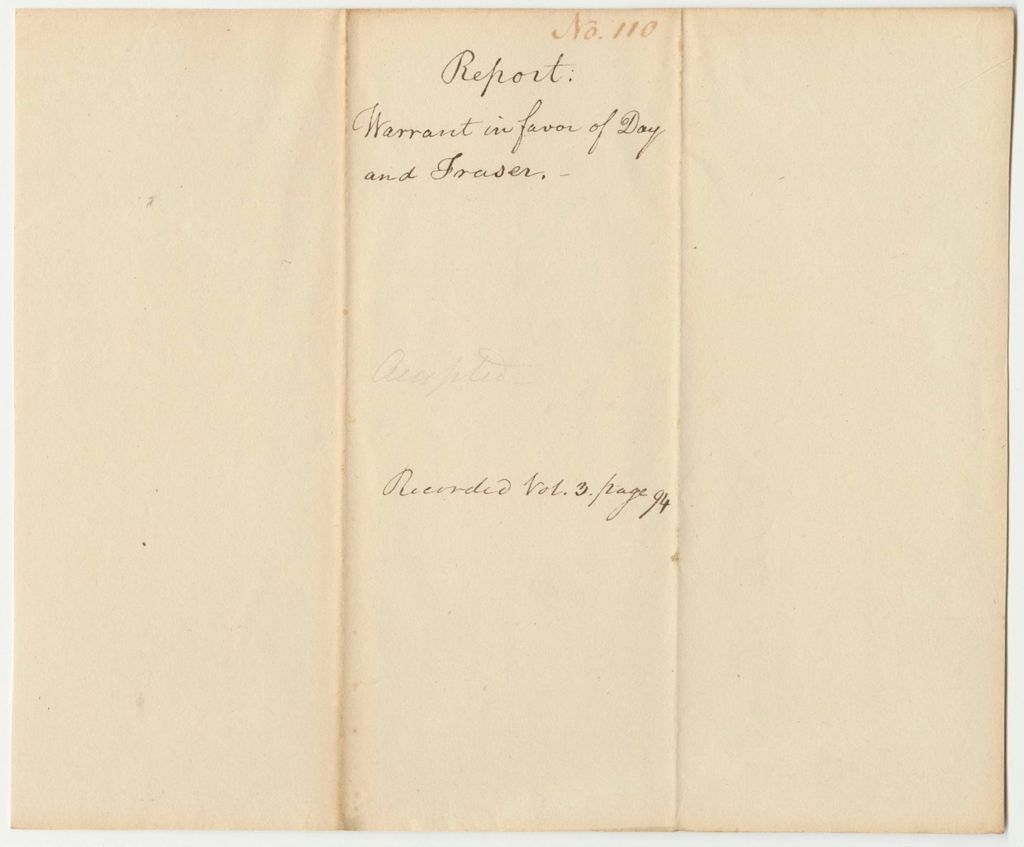 No. 110
Report:
Warrant in favor of Day
and Fraser. -
Accepted -
Recorded Vol. 3. page 94